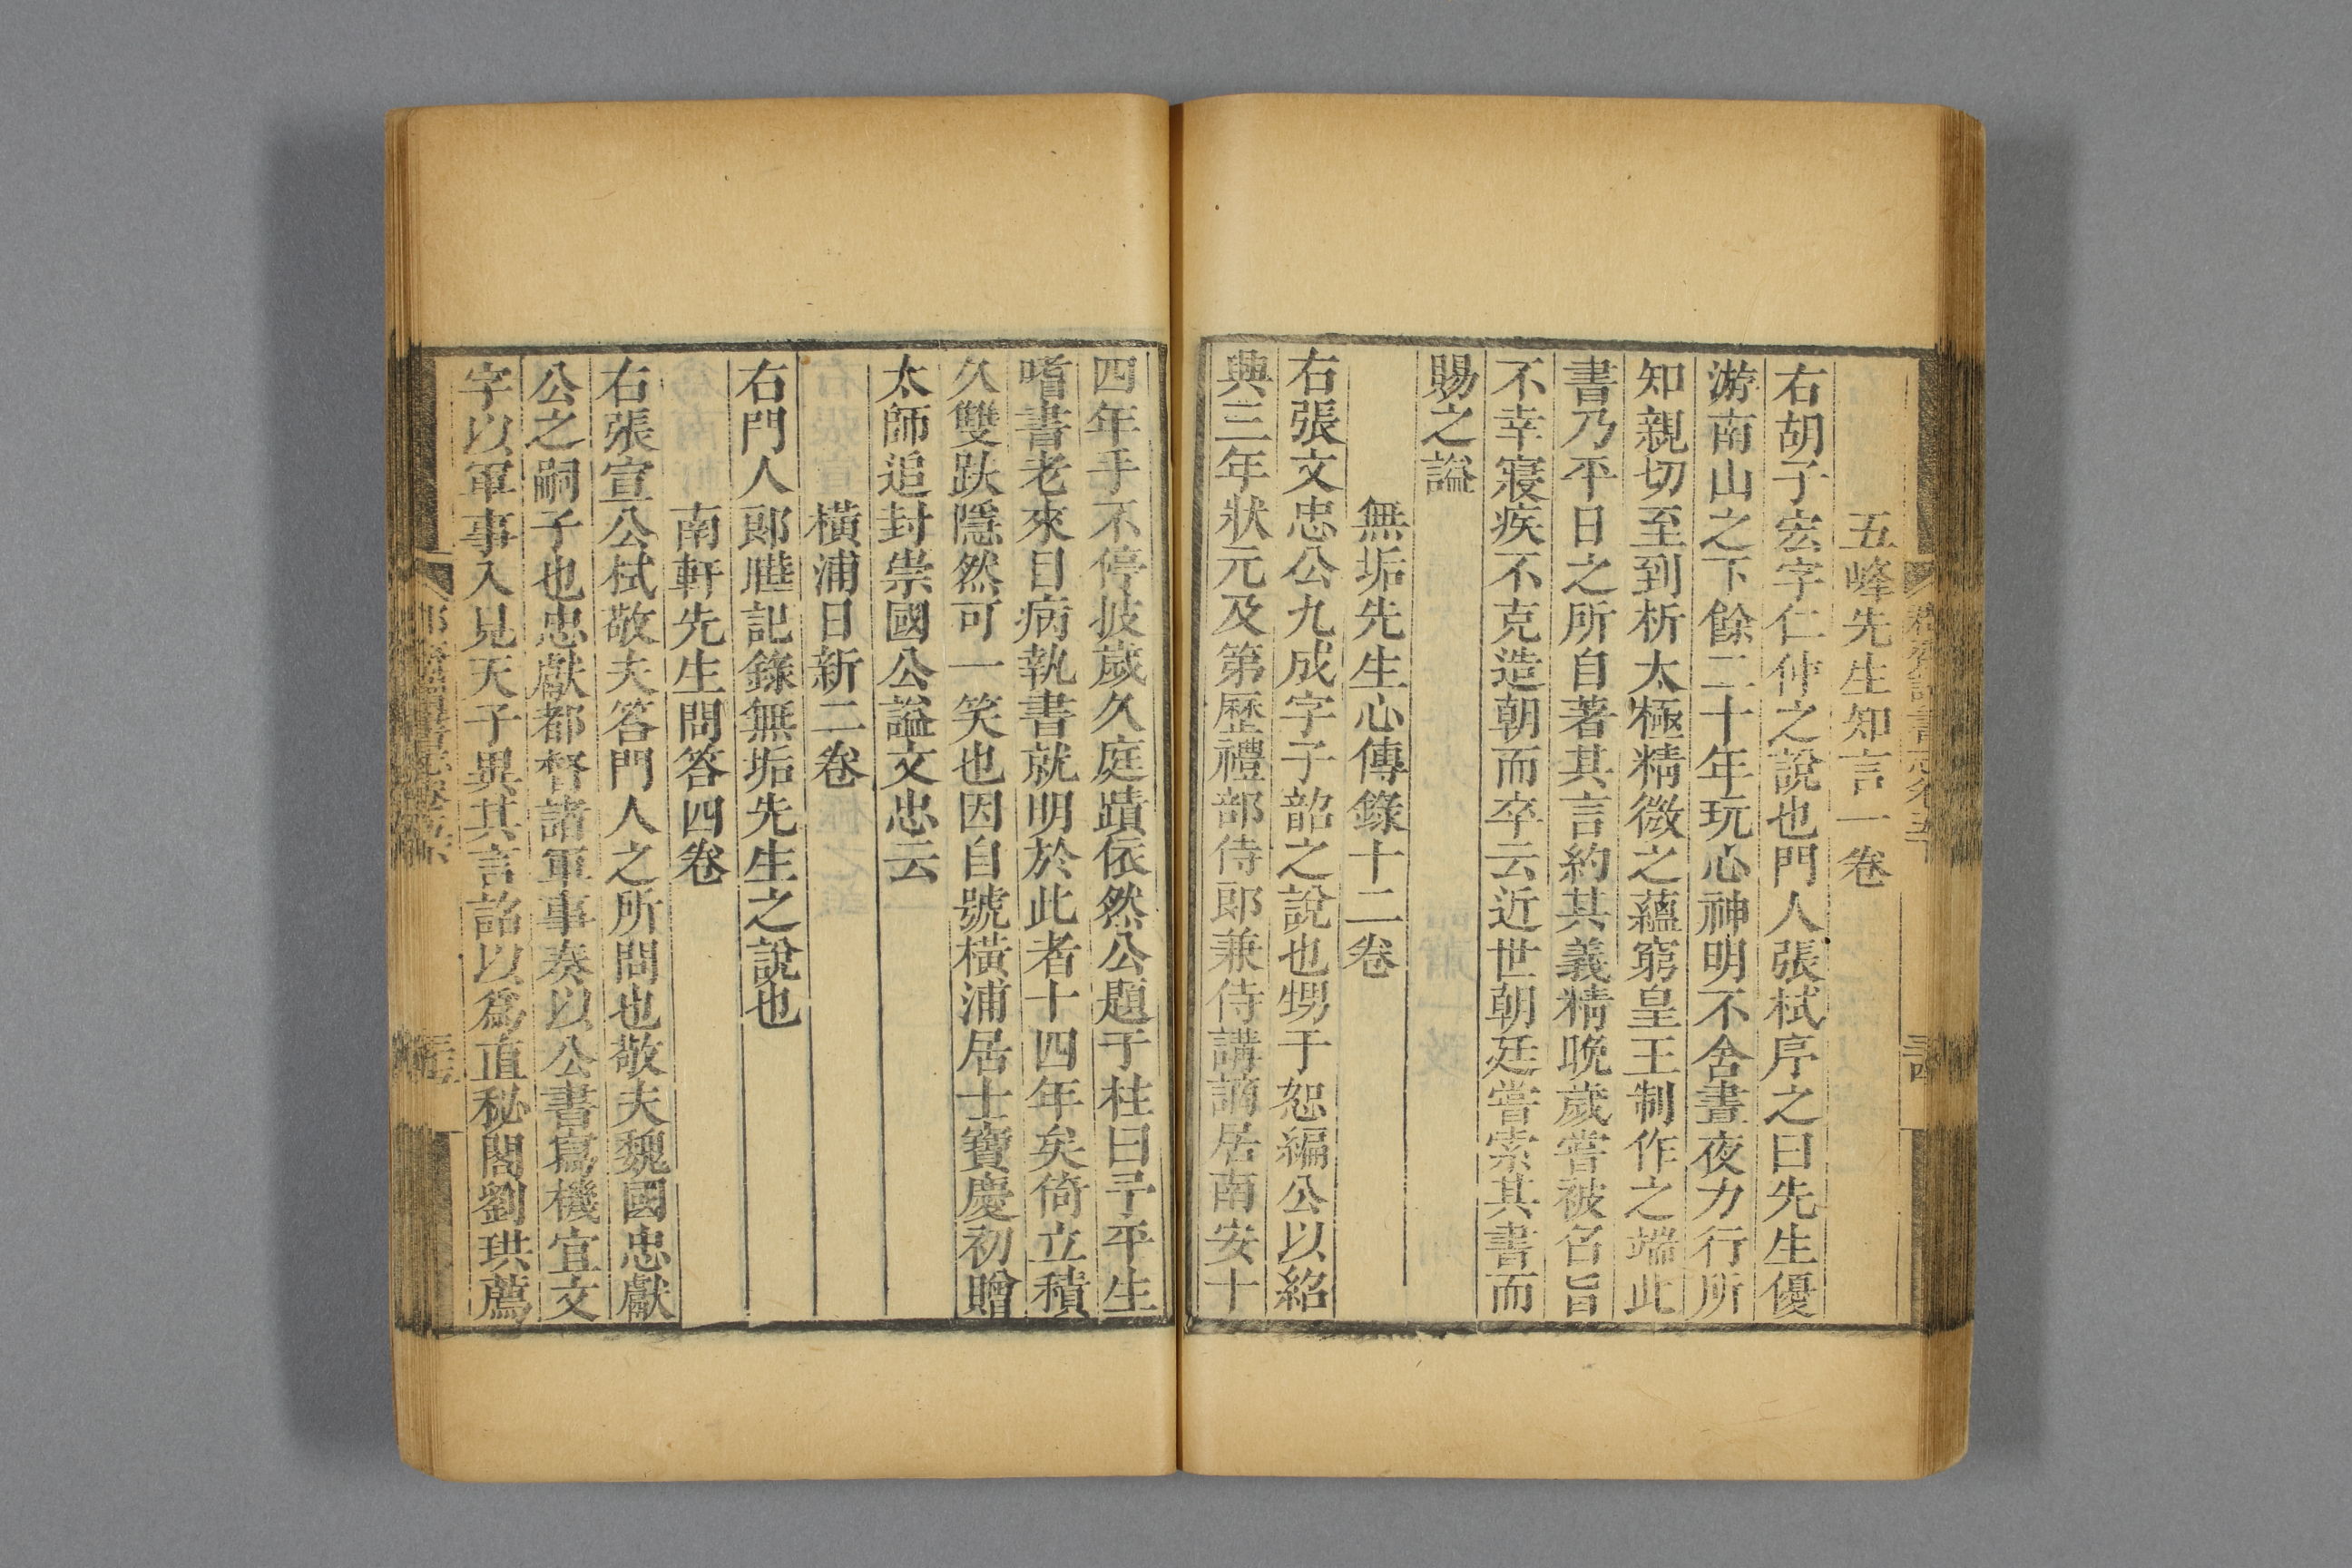 五峰先生知言一卷
右胡子宏字仁仲之說也門人張栻序之曰先生優
游南山之下餘二十年玩心神明不舍晝夜力行所
知親切至到析太極精微之蘊窮皇王制作之端此
書乃平日之所自著其言約其義精晩歲嘗被召旨
不幸寢疾不克造朝而卒云近世朝廷嘗索其書而
賜之謚
無垢先生心傳錄十二卷
右張文忠公九成字子韶之說也甥于恕編公以紹
興三年狀元及第歷禮部侍郎兼侍講謫居南安十
四年手不停披歲久庭蹟依然公題于柱曰予平生
嗜書老來目病執書就明於此者十四年矣倚立積
久雙趺隱然可一笑也因自號橫浦居士寶慶初贈
太師追封崇國公謚文忠云
橫浦日新二卷
右門人郎曄記錄無垢先生之說也
南軒先生問答四卷
右張宣公栻敬夫答門人之所問也敬夫魏國忠獻
公之嗣子也忠獻都督諸軍事奏以公書寫機宜文
字以軍事入見天子異其言詔以爲直秘閣劉珙薦